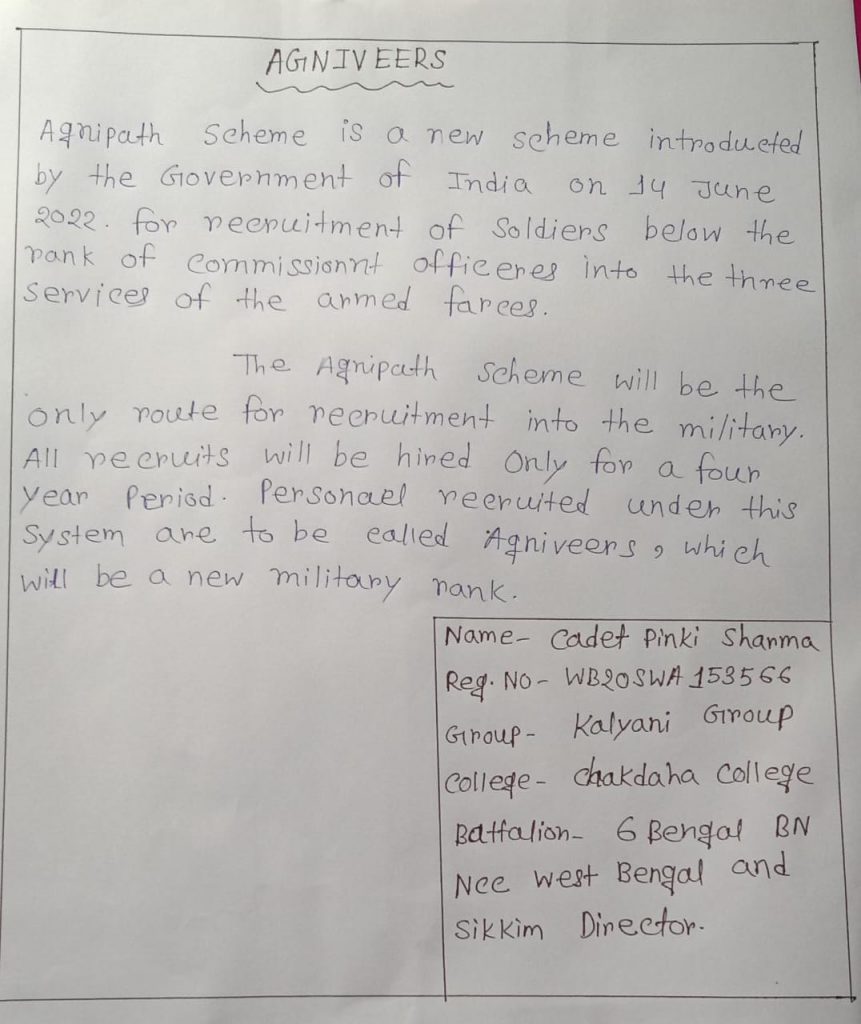 AGNIVEERS
Agnipath Scheme is a new scheme introducted
by the Government of India on 14 June
2022. for recruitment of Soldiers below the
rank of commissionnt officeres into the three
Services of the armed farces.
The Agnipath scheme will be the
only route for recruitment into the military.
All recruits will be hired Only for a four
year Period. Personael recruited under this
System are to be called Agniveers, which
will be a new military rank.
Name- Cadet Pinki Sharma
Reg. No- WB20SWA153566
Group- Kalyani Group
College- Chakdaha College
Battalion- 6 Bengal BN
Ncc west Bengal and
Sikkim Director.